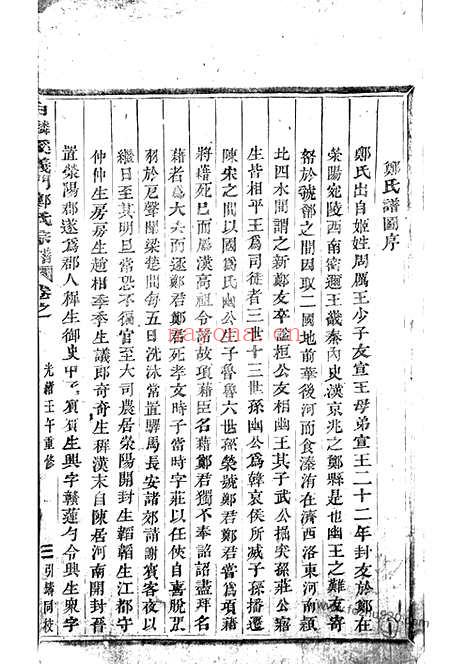 鄭氏譜圖序
鄭氏出自姬姓周厲王少子友宣王母弟宣王二十二年封友於鄭在
滎陽宛陵西南密邇王畿秦內史漢京兆之鄭縣是也幽王之難友寄
帑於虢鄶之間因取二國地前華後河而食溱洧在濟西洛東河南潁
北四水間謂之新鄭友卒謚桓公友相幽王其子武公掘突孫莊公寤
生皆相平王為司徒者三世十三世孫幽公為韓哀侯所滅子孫播遷
陳宋之間以國為氏幽公生子魯魯六世孫榮號鄭君鄭君嘗為項藉
將藉死已而屬漢高祖令諸故項藉臣名藉鄭君獨不奉詔詔盡拜名
藉者為大夫而逐鄭君鄭君死孝文時子當時字莊以任俠自喜脫張
羽於戹聲聞梁楚間每五日洗沐常置驛馬長安諸郊請謝賓客夜以
繼日至其明旦當恐不徧官至大司農居滎陽開封生韜韜生江都守
仲仲生房房生趙相季季生議郎奇奇生穉漢末自陳居河南開封晉
置滎陽郡遂為郡人穉生御史中丞賓賓生興字贛蓮勺令興生衆字
白麟溪義門鄭氏宗譜圖卷之一
光緒壬午重修
三
引嬉同校